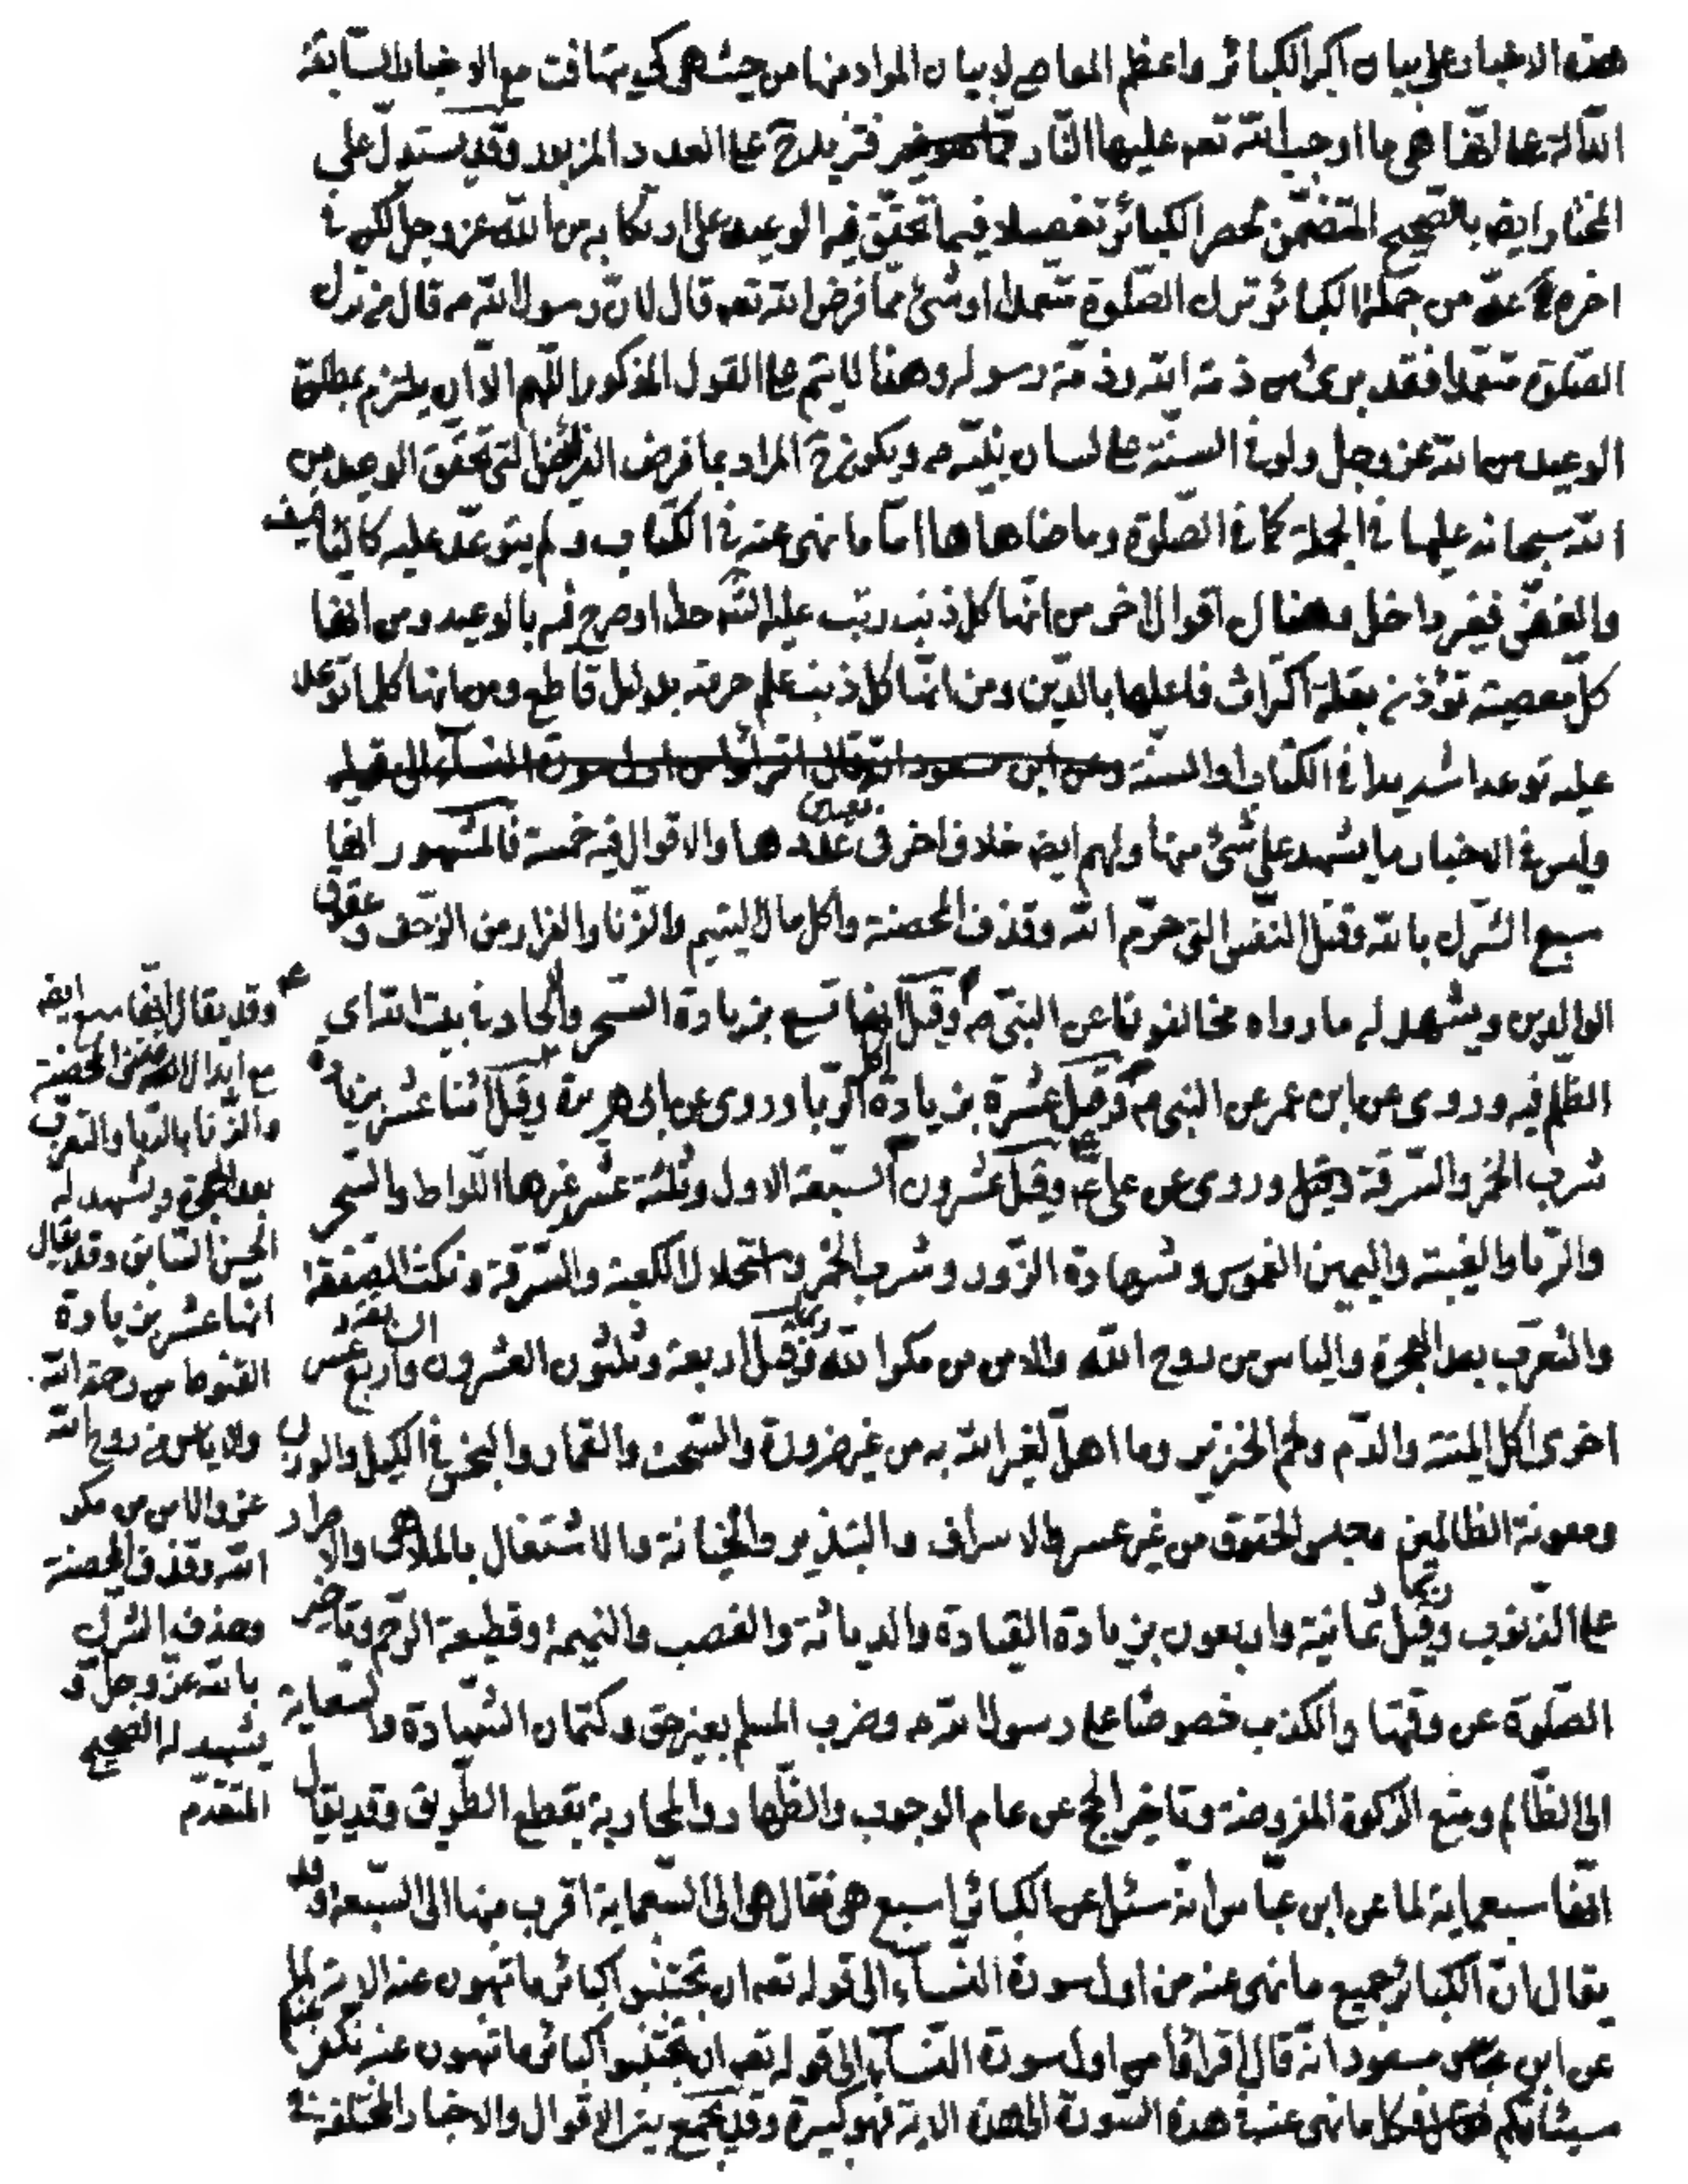 هذه الاخبار على بيان اكبر الكبائر واعظم المعاصي لا بيان المراد منها من حيث هي كي يتهافت مع الاخبار السابقة
الدالة على انها هي ما اوجب الله تعه عليها النار فتزيد ح على العدد المزبور وقد يستدل على
المختار ايضا بالصحيح المتضمن لحصر الكبائر تفصيلا فيما تحقق فيه الوعيد على ارتكابه من الله عز وجل لكن في
اخره عد من جملة الكبائر ترك الصلوة متعمدا او شئ مما فرض الله تعه قال لان رسول الله ص قال من ترك
الصلوة متعمدا فقد برئ من ذمة الله وذمة رسوله وهذا لا يتم على القول المذكور اللهم الا ان يلتزم بمطلق
الوعيد من الله عز وجل ولو في السنة على لسان نبيه ص ويكون ح المراد بما فرض الفرائض التي تحقق الوعيد من
الله سبحانه عليها في الجملة كما في الصلوة وما ضاهاها اما ما نهى عنه في الكتاب ولم يتوعد عليه كالتافيف
والغض فغير داخل وهنا اقوال اخر من انها كل ذنب رتب عليه الشه حدا او صرح فيه بالوعيد ومن انها
كل معصية تؤذن بقلة اكتراث فاعلها بالدين ومن انها كل ذنب علم حرمته بدليل قاطع ومن انها كلما توعد
عليه توعدا شديدا في الكتاب او السنة وعن ابن مسعود انه قال اقرأوا من اول سورة النسآء الى قوله
وليس في الاخبار ما يشهد على شئ منها ولهم ايضا خلاف اخر في تعيين عددها والاقوال فيه خمسة فالمشهور انها
سبع الشرك بالله وقتل النفس التي حرم الله وقذف المحصنة واكل مال اليتيم والزنا والفرار من الزحف وعقوق
الوالدين ويشهد له ما رواه مخالفونا عن النبي ص وقيل انها تسع بزيادة السحر والالحاد في بيت الله اي
الظلم فيه وروى عن ابن عمر عن النبي ص وقيل عشرة بزيادة اكل الربا وروى عن ابي هريرة وقيل اثنا عشر بزيادة
شرب الخمر والسرقة وروى عن علي ع وقيل عشرون السبعة الاول وثلثة عشر غيرها اللواط والسحر
والربا والغيبة واليمين الغموس وشهادة الزور وشرب الخمر واستحلال الكعبة والسرقة ونكث الصفقة
والتعرب بعد الهجرة والياس من روح الله والامن من مكر الله وقيل اربعة وثلثون العشرون واربع عشر
اخرى اكل الميتة والدم ولحم الخنزير وما اهل لغير الله به من غير ضرورة والسحت والقمار والبخس في الكيل والوزن
ومعونة الظالمين وحبس الحقوق من غير عسر والاسراف والتبذير والخيانة والاشتغال بالملاهي والاصرار
على الذنوب وقيل ثمانية واربعون بزيادة القيادة والدياثة والغصب والنميمة وقطيعة الرحم وتاخير
الصلوة عن وقتها والكذب خصوصا على رسول الله ص وضرب المسلم بغير حق وكتمان الشهادة والسعاية
الى الظالم ومنع الزكوة المفروضة وتاخير الحج عن عام الوجوب والظهار والمحاربة بقطع الطريق وقد يقال
انها سبعماية لما عن ابن عباس انه سئل عن الكبائر اسبع هي فقال هي الى السبعماية اقرب منها الى السبعة وقد
يقال ان الكبائر جميع ما نهى عنه من اول سورة النسآء الى قوله تعه ان تجتنبوا كبائر ما تنهون عنه الاية لما
عن ابن مسعود انه قال اقرأوا من اول سورة النسآء الى قوله تعه ان تجتنبوا كبائر ما تنهون عنه نكفر عنكم
سيئاتكم فكل ما نهى عنه في هذه السورة الى هذه الاية فهو كبيرة وقد يجمع بين الاقوال والاخبار المختلفة في
وقد يقال انها سبع ايضا
مع ابدال المحصنة
والزنا بالربا والتعرب
بعد الهجرة ويشهد له
الحسن السابق وقد يقال
انها عشر بزيادة
القنوط من رحمة الله
والاياس من روح الله
عز والامن من مكر
الله وقذف المحصنة
وحذف الشرك
بالله عز وجل و
يشهد له الصحيح
المتقدم